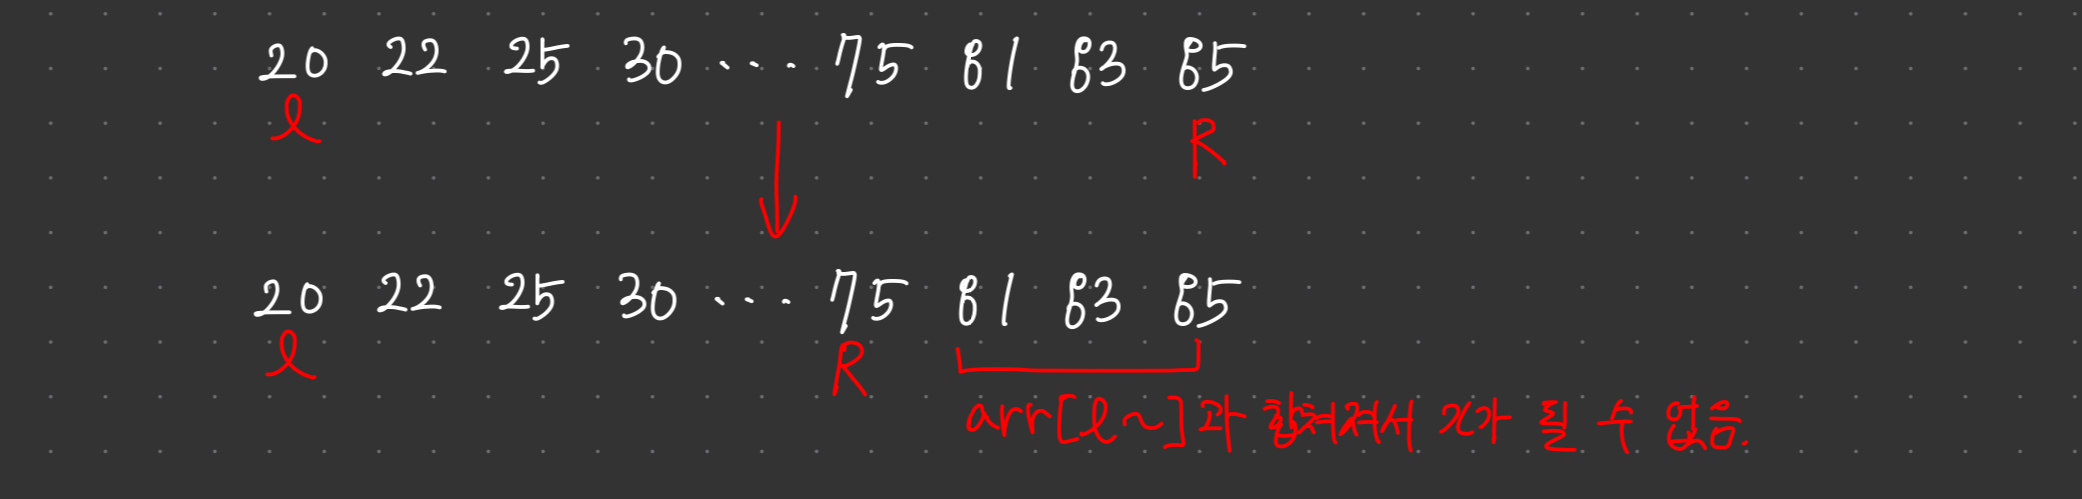 20 22 25 30 ... 75 81 83 85
l R
20 22 25 30 ... 75 81 83 85
l R
arr[l~]과 합쳐져서 x가 될 수 없음.